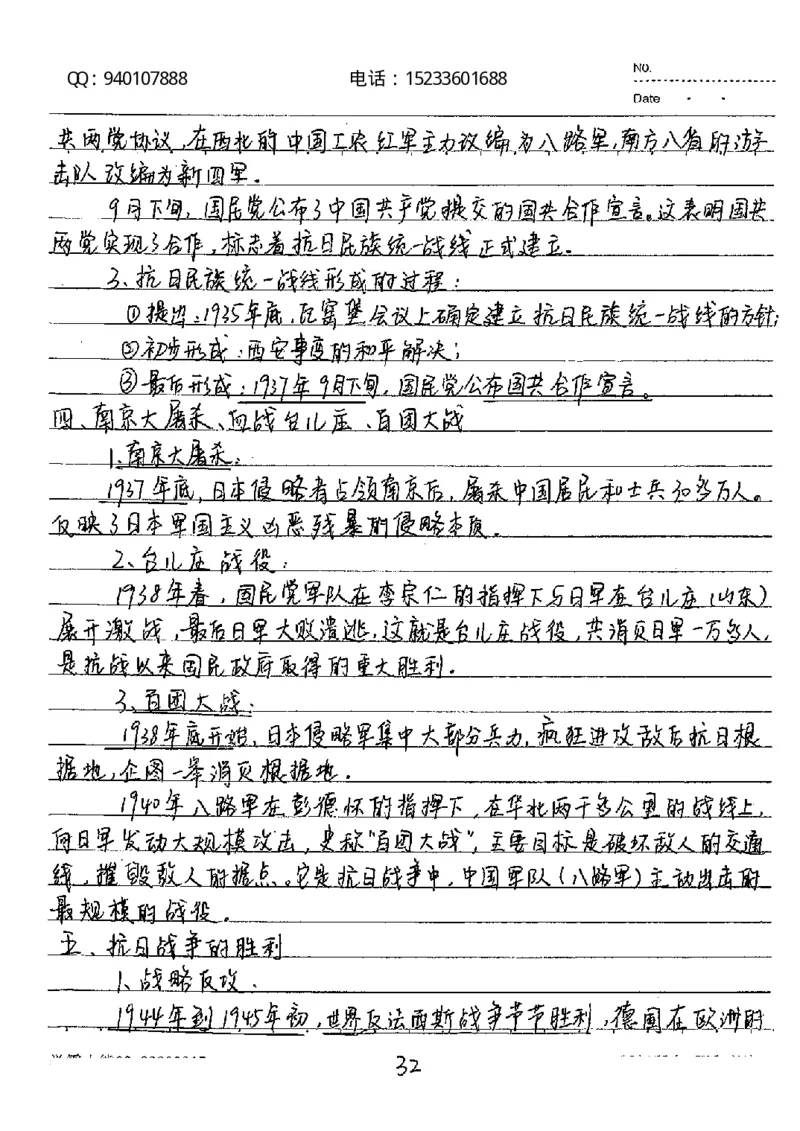 QQ：940107888 电话：15233601688 No.
Date
共两党协议，在西北的中国工农红军主力改编为八路军，南方八省的游
击队改编为新四军。
9月下旬，国民党公布了中国共产党提交的国共合作宣言。这表明国共
两党实现了合作，标志着抗日民族统一战线正式建立。
3、抗日民族统一战线形成的过程：
①提出：1935年底，瓦窑堡会议上确定建立抗日民族统一战线的方针；
②初步形成：西安事变的和平解决；
③最后形成：1937年9月下旬，国民党公布国共合作宣言。
四、南京大屠杀、血战台儿庄、百团大战
1、南京大屠杀：
1937年底，日本侵略者占领南京后，屠杀中国居民和士兵30多万人。
反映了日本军国主义凶恶残暴的侵略本质。
2、台儿庄战役：
1938年春，国民党军队在李宗仁的指挥下与日军在台儿庄（山东）
展开激战，最后日军大败溃逃，这就是台儿庄战役，共消灭日军一万多人，
是抗战以来国民政府取得的重大胜利。
3、百团大战：
1938年底开始，日本侵略军集中大部分兵力，疯狂进攻敌后抗日根
据地，企图一举消灭根据地。
1940年八路军在彭德怀的指挥下，在华北两千多公里的战线上，
向日军发动大规模攻击，史称“百团大战”，主要目标是破坏敌人的交通
线，摧毁敌人的据点。它是抗日战争中，中国军队（八路军）主动出击的
最规模的战役。
五、抗日战争的胜利
1、战略反攻.
1944年到1945年初，世界反法西斯战争节节胜利，德国在欧洲的
32